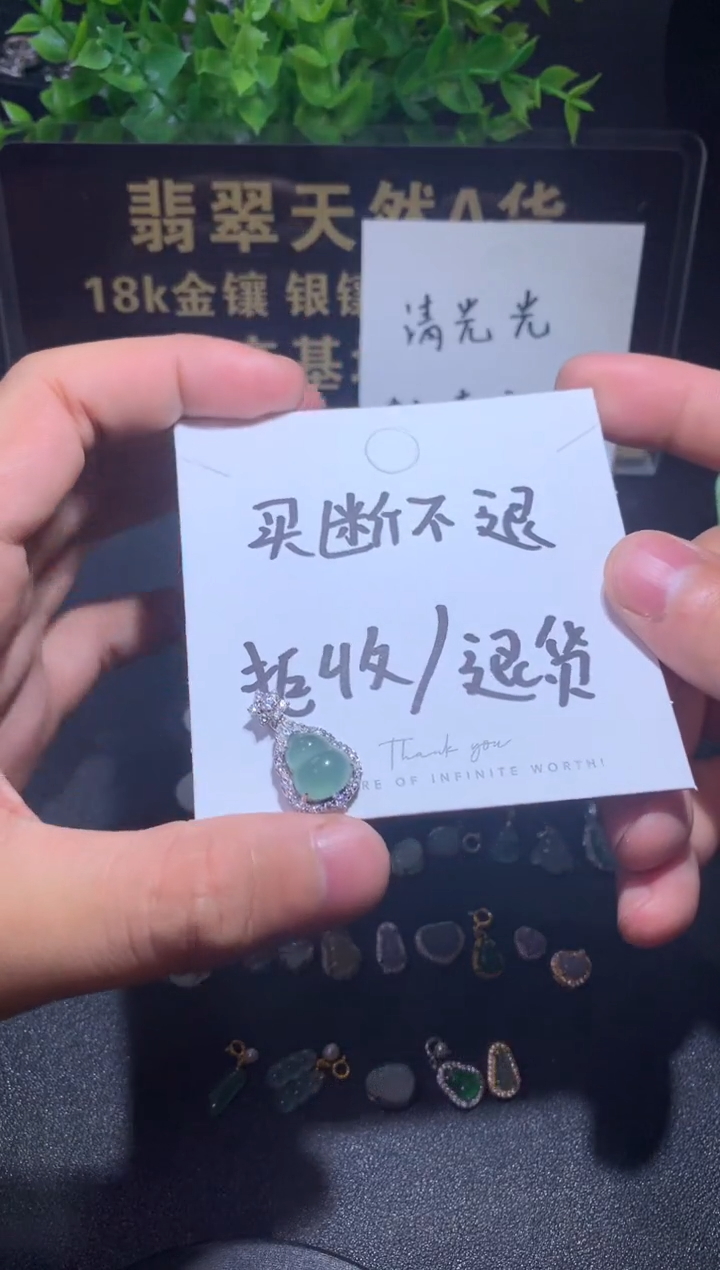 翡翠天然A货
18k金镶 银镶
清光光
买断不退
拒收/退货
Thank you
RE OF INFINITE WORTH!